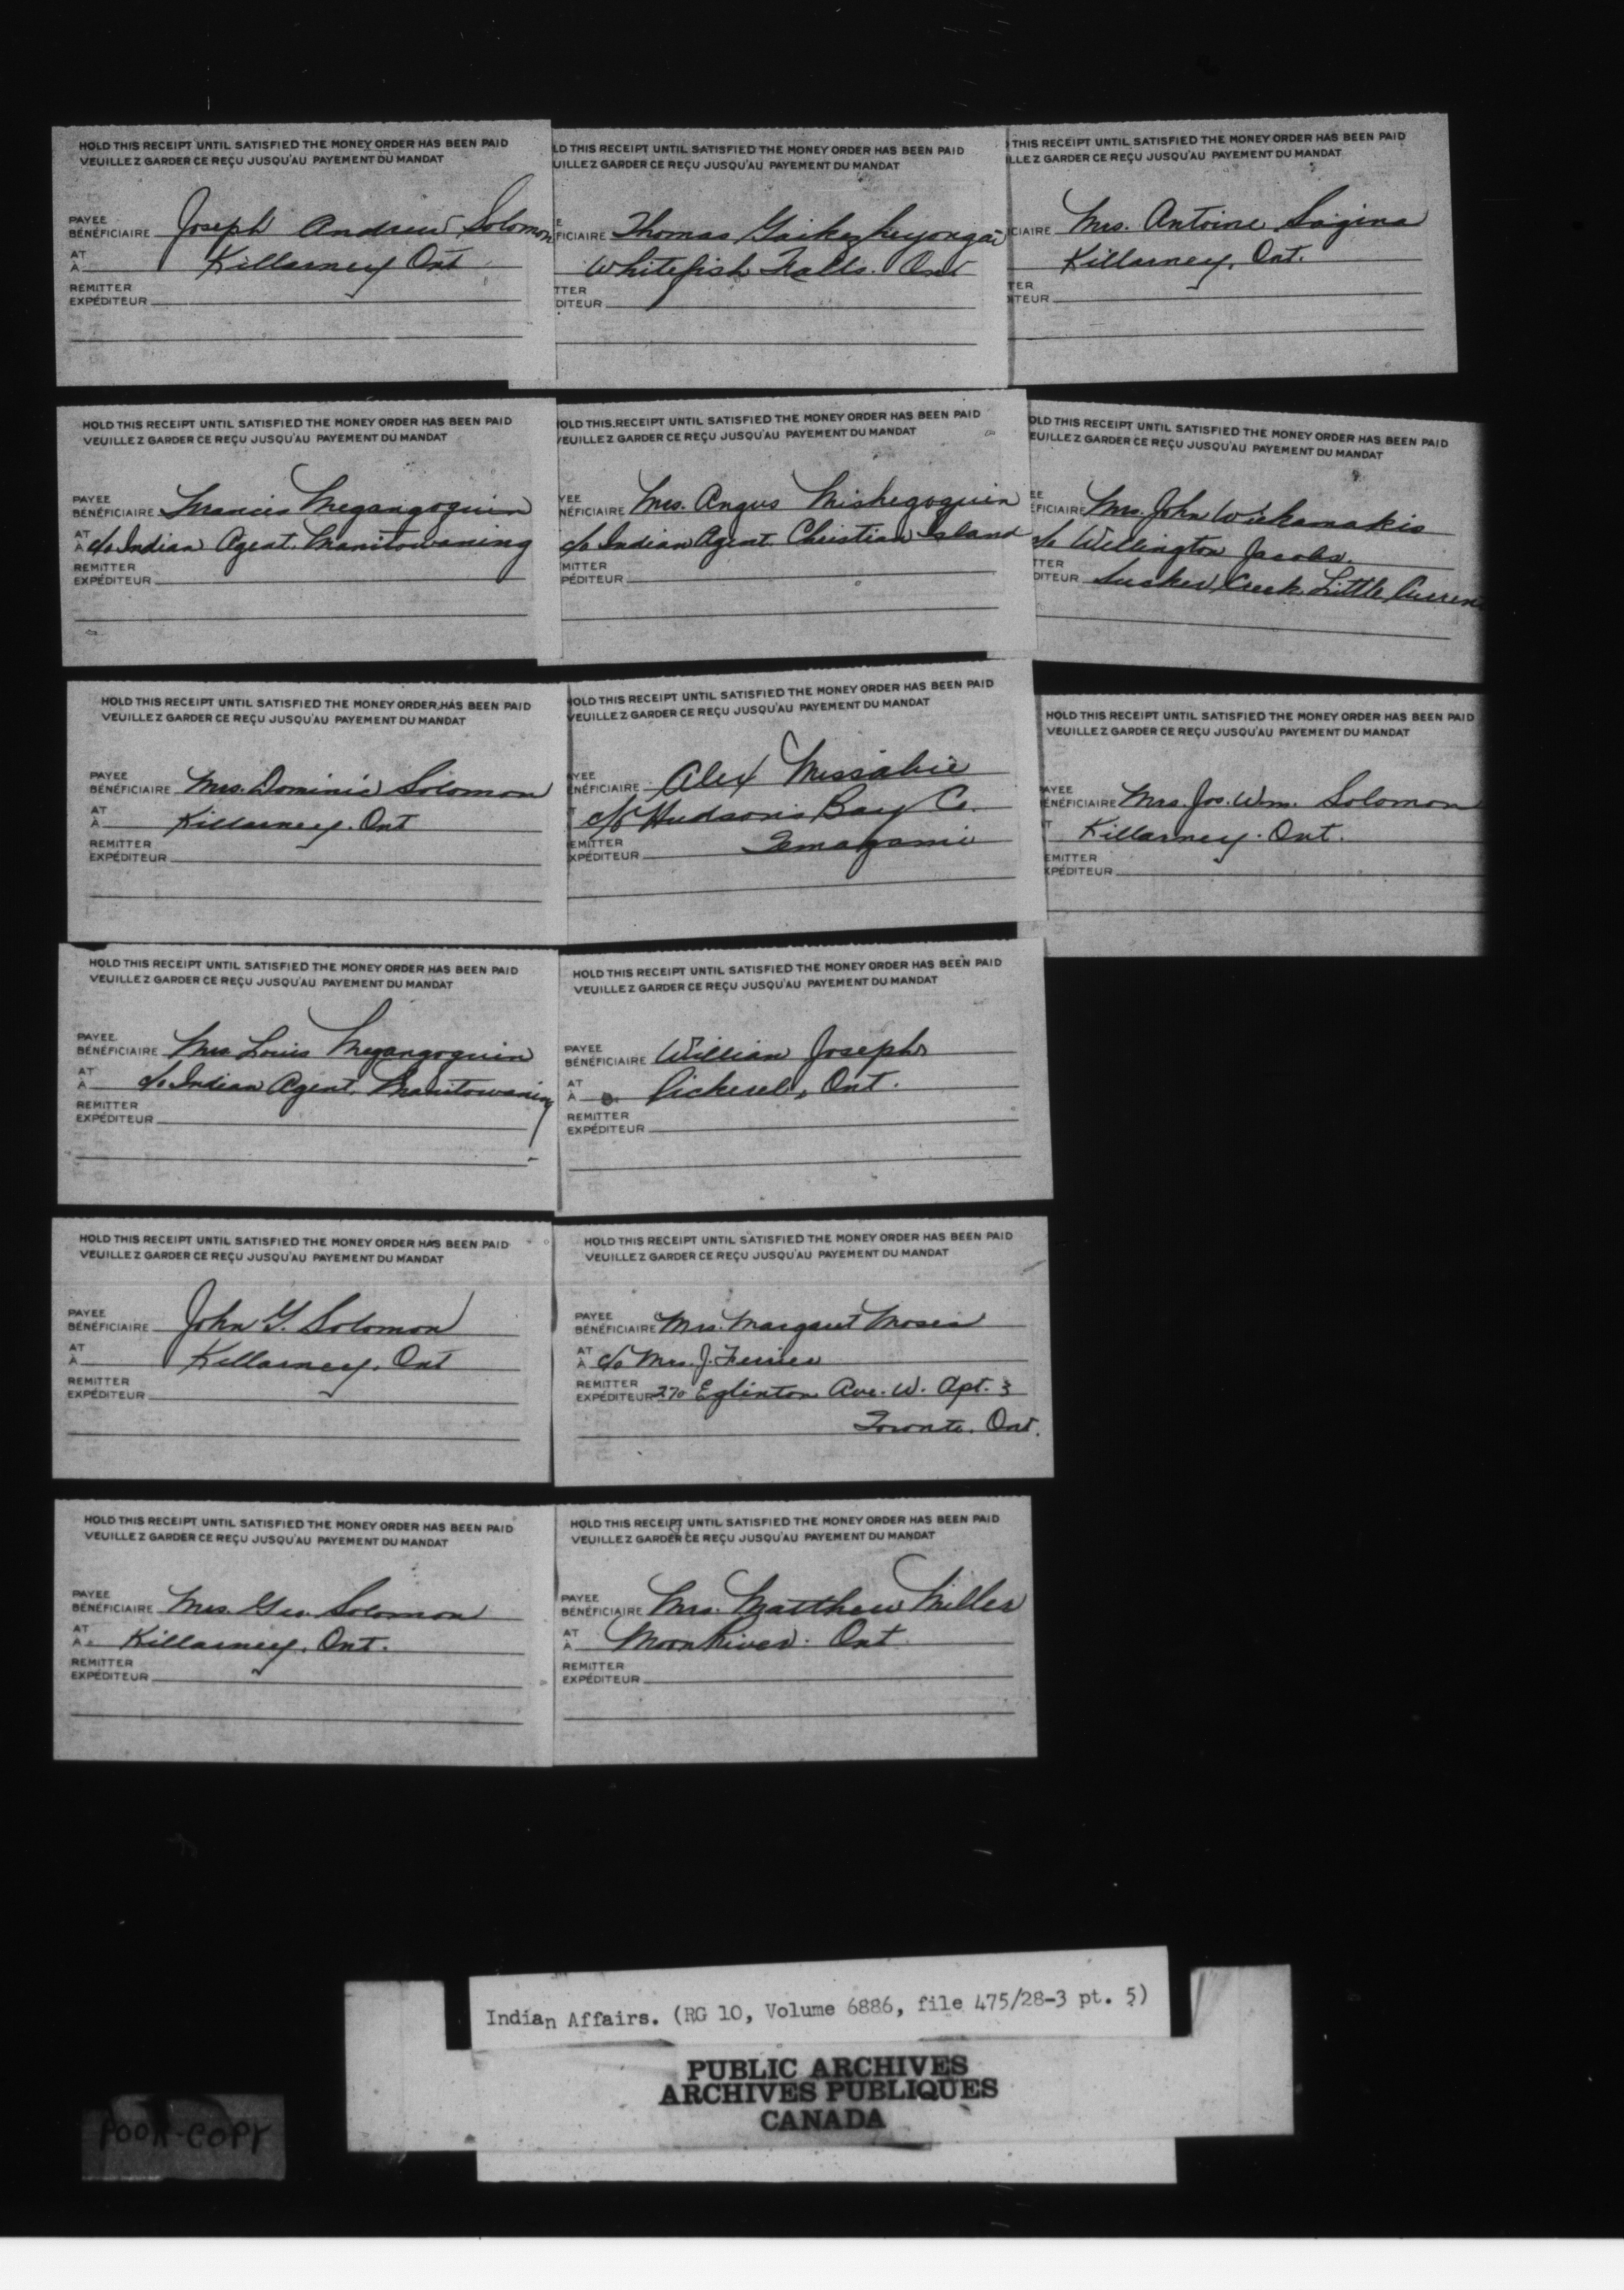 HOLD THIS RECEIPT UNTIL SATISFIED THE MONEY ORDER HAS BEEN PAID
VEUILLEZ GARDER CE REÇU JUSQU'AU PAYEMENT DU MANDAT
PAYEE
BÉNÉFICIAIRE Joseph Andrew Solomon
AT
À Killarney Ont
REMITTER
EXPÉDITEUR
LD THIS RECEIPT UNTIL SATISFIED THE MONEY ORDER HAS BEEN PAID
UILLEZ GARDER CE REÇU JUSQU'AU PAYEMENT DU MANDAT
E
FICIAIRE Thomas
Whitefish Falls. Ont
TTER
DITEUR
THIS RECEIPT UNTIL SATISFIED THE MONEY ORDER HAS BEEN PAID
LLEZ GARDER CE REÇU JUSQU'AU PAYEMENT DU MANDAT
CIAIRE Mrs. Antoine Sagina
Killarney, Ont.
TER
TEUR
HOLD THIS RECEIPT UNTIL SATISFIED THE MONEY ORDER HAS BEEN PAID
VEUILLEZ GARDER CE REÇU JUSQU'AU PAYEMENT DU MANDAT
PAYEE
BÉNÉFICIAIRE Francis Megangoquin
AT
À c/o Indian Agent. Manitowaning
REMITTER
EXPÉDITEUR
HOLD THIS RECEIPT UNTIL SATISFIED THE MONEY ORDER HAS BEEN PAID
VEUILLEZ GARDER CE REÇU JUSQU'AU PAYEMENT DU MANDAT
YEE
NÉFICIAIRE Mrs. Angus Mishegoquin
c/o Indian Agent. Christian Island
MITTER
PÉDITEUR
OLD THIS RECEIPT UNTIL SATISFIED THE MONEY ORDER HAS BEEN PAID
EUILLEZ GARDER CE REÇU JUSQU'AU PAYEMENT DU MANDAT
EE
ÉFICIAIRE Mrs. John Wickamakis
c/o Wellington Jacobs.
TTER
DITEUR Sucker Creek. Little Curren
HOLD THIS RECEIPT UNTIL SATISFIED THE MONEY ORDER HAS BEEN PAID
VEUILLEZ GARDER CE REÇU JUSQU'AU PAYEMENT DU MANDAT
PAYEE
BÉNÉFICIAIRE Mrs. Dominic Solomon
AT
À Killarney. Ont
REMITTER
EXPÉDITEUR
HOLD THIS RECEIPT UNTIL SATISFIED THE MONEY ORDER HAS BEEN PAID
VEUILLEZ GARDER CE REÇU JUSQU'AU PAYEMENT DU MANDAT
AYEE
ÉNÉFICIAIRE Alex Missabie
T c/o Hudson's Bay Co.
EMITTER
XPÉDITEUR Temagami
HOLD THIS RECEIPT UNTIL SATISFIED THE MONEY ORDER HAS BEEN PAID
VEUILLEZ GARDER CE REÇU JUSQU'AU PAYEMENT DU MANDAT
AYEE
ÉNÉFICIAIRE Mrs. Jos. Wm. Solomon
T Killarney. Ont.
EMITTER
XPÉDITEUR
HOLD THIS RECEIPT UNTIL SATISFIED THE MONEY ORDER HAS BEEN PAID
VEUILLEZ GARDER CE REÇU JUSQU'AU PAYEMENT DU MANDAT
PAYEE
BÉNÉFICIAIRE Mrs Louis Megangoquin
AT
À c/o Indian Agent. Manitowaning
REMITTER
EXPÉDITEUR
HOLD THIS RECEIPT UNTIL SATISFIED THE MONEY ORDER HAS BEEN PAID
VEUILLEZ GARDER CE REÇU JUSQU'AU PAYEMENT DU MANDAT
PAYEE
BÉNÉFICIAIRE William Joseph
AT
À Pickerel, Ont.
REMITTER
EXPÉDITEUR
HOLD THIS RECEIPT UNTIL SATISFIED THE MONEY ORDER HAS BEEN PAID
VEUILLEZ GARDER CE REÇU JUSQU'AU PAYEMENT DU MANDAT
PAYEE
BÉNÉFICIAIRE John G. Solomon
AT
À Killarney. Ont
REMITTER
EXPÉDITEUR
HOLD THIS RECEIPT UNTIL SATISFIED THE MONEY ORDER HAS BEEN PAID
VEUILLEZ GARDER CE REÇU JUSQU'AU PAYEMENT DU MANDAT
PAYEE
BÉNÉFICIAIRE Mrs. Margaret Moses
AT
À c/o Mrs. J. Ferrier
REMITTER
EXPÉDITEUR 270 Eglinton Ave. W. Apt. 3
Toronto. Ont.
HOLD THIS RECEIPT UNTIL SATISFIED THE MONEY ORDER HAS BEEN PAID
VEUILLEZ GARDER CE REÇU JUSQU'AU PAYEMENT DU MANDAT
PAYEE
BÉNÉFICIAIRE Mrs. Geo. Solomon
AT
À Killarney. Ont.
REMITTER
EXPÉDITEUR
HOLD THIS RECEIPT UNTIL SATISFIED THE MONEY ORDER HAS BEEN PAID
VEUILLEZ GARDER CE REÇU JUSQU'AU PAYEMENT DU MANDAT
PAYEE
BÉNÉFICIAIRE Mrs. Matthew Miller
AT
À Moon River. Ont.
REMITTER
EXPÉDITEUR
Indian Affairs. (RG 10, Volume 6886, file 475/28-3 pt. 5)
PUBLIC ARCHIVES
ARCHIVES PUBLIQUES
CANADA
POOR COPY